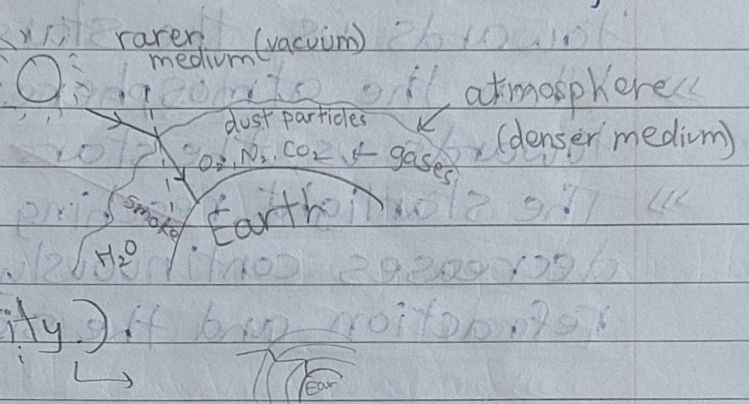 rarer
medium (vacuum)
atmosphere
(denser medium)
dust particles
O₂, N₂, CO₂ ← gases
smoke
Earth
H₂O
ity.)
Ear